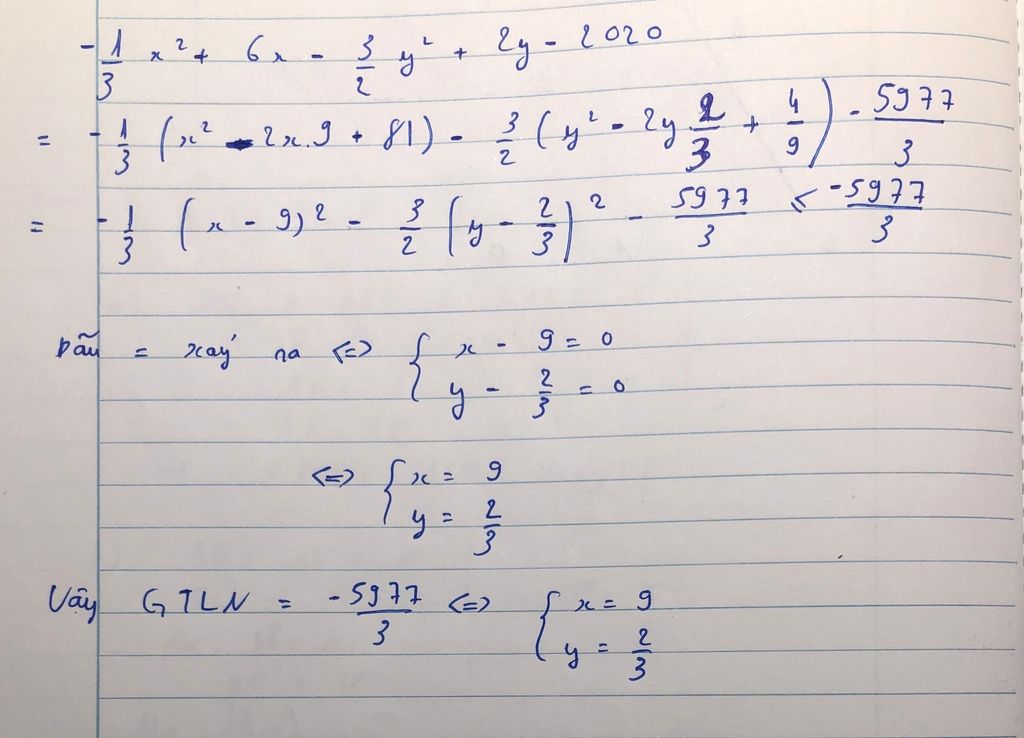 - 1/3 x² + 6x - 3/2 y² + 2y - 2020
= - 1/3 (x² - 2x.9 + 81) - 3/2 (y² - 2y 2/3 + 4/9) - 5977/3
= - 1/3 (x - 9)² - 3/2 (y - 2/3)² - 5977/3 ≤ -5977/3
Dấu = xảy ra <=> { x - 9 = 0
y - 2/3 = 0
<=> { x = 9
y = 2/3
Vậy GTLN = -5977/3 <=> { x = 9
y = 2/3